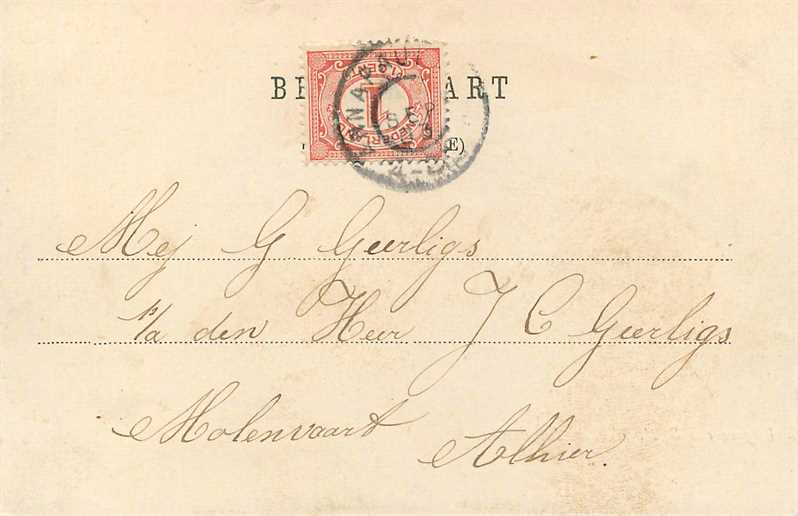 BR ART
E)
NEDERLAND
1
ANNA P
SEP
Mej G. Geerligs
p/a den Heer J C Geerligs
Molenvaart Alhier.